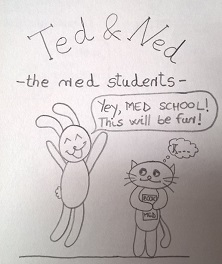 Ted & Ned
-the med students-
Yey, MED SCHOOL!
This will be fun!